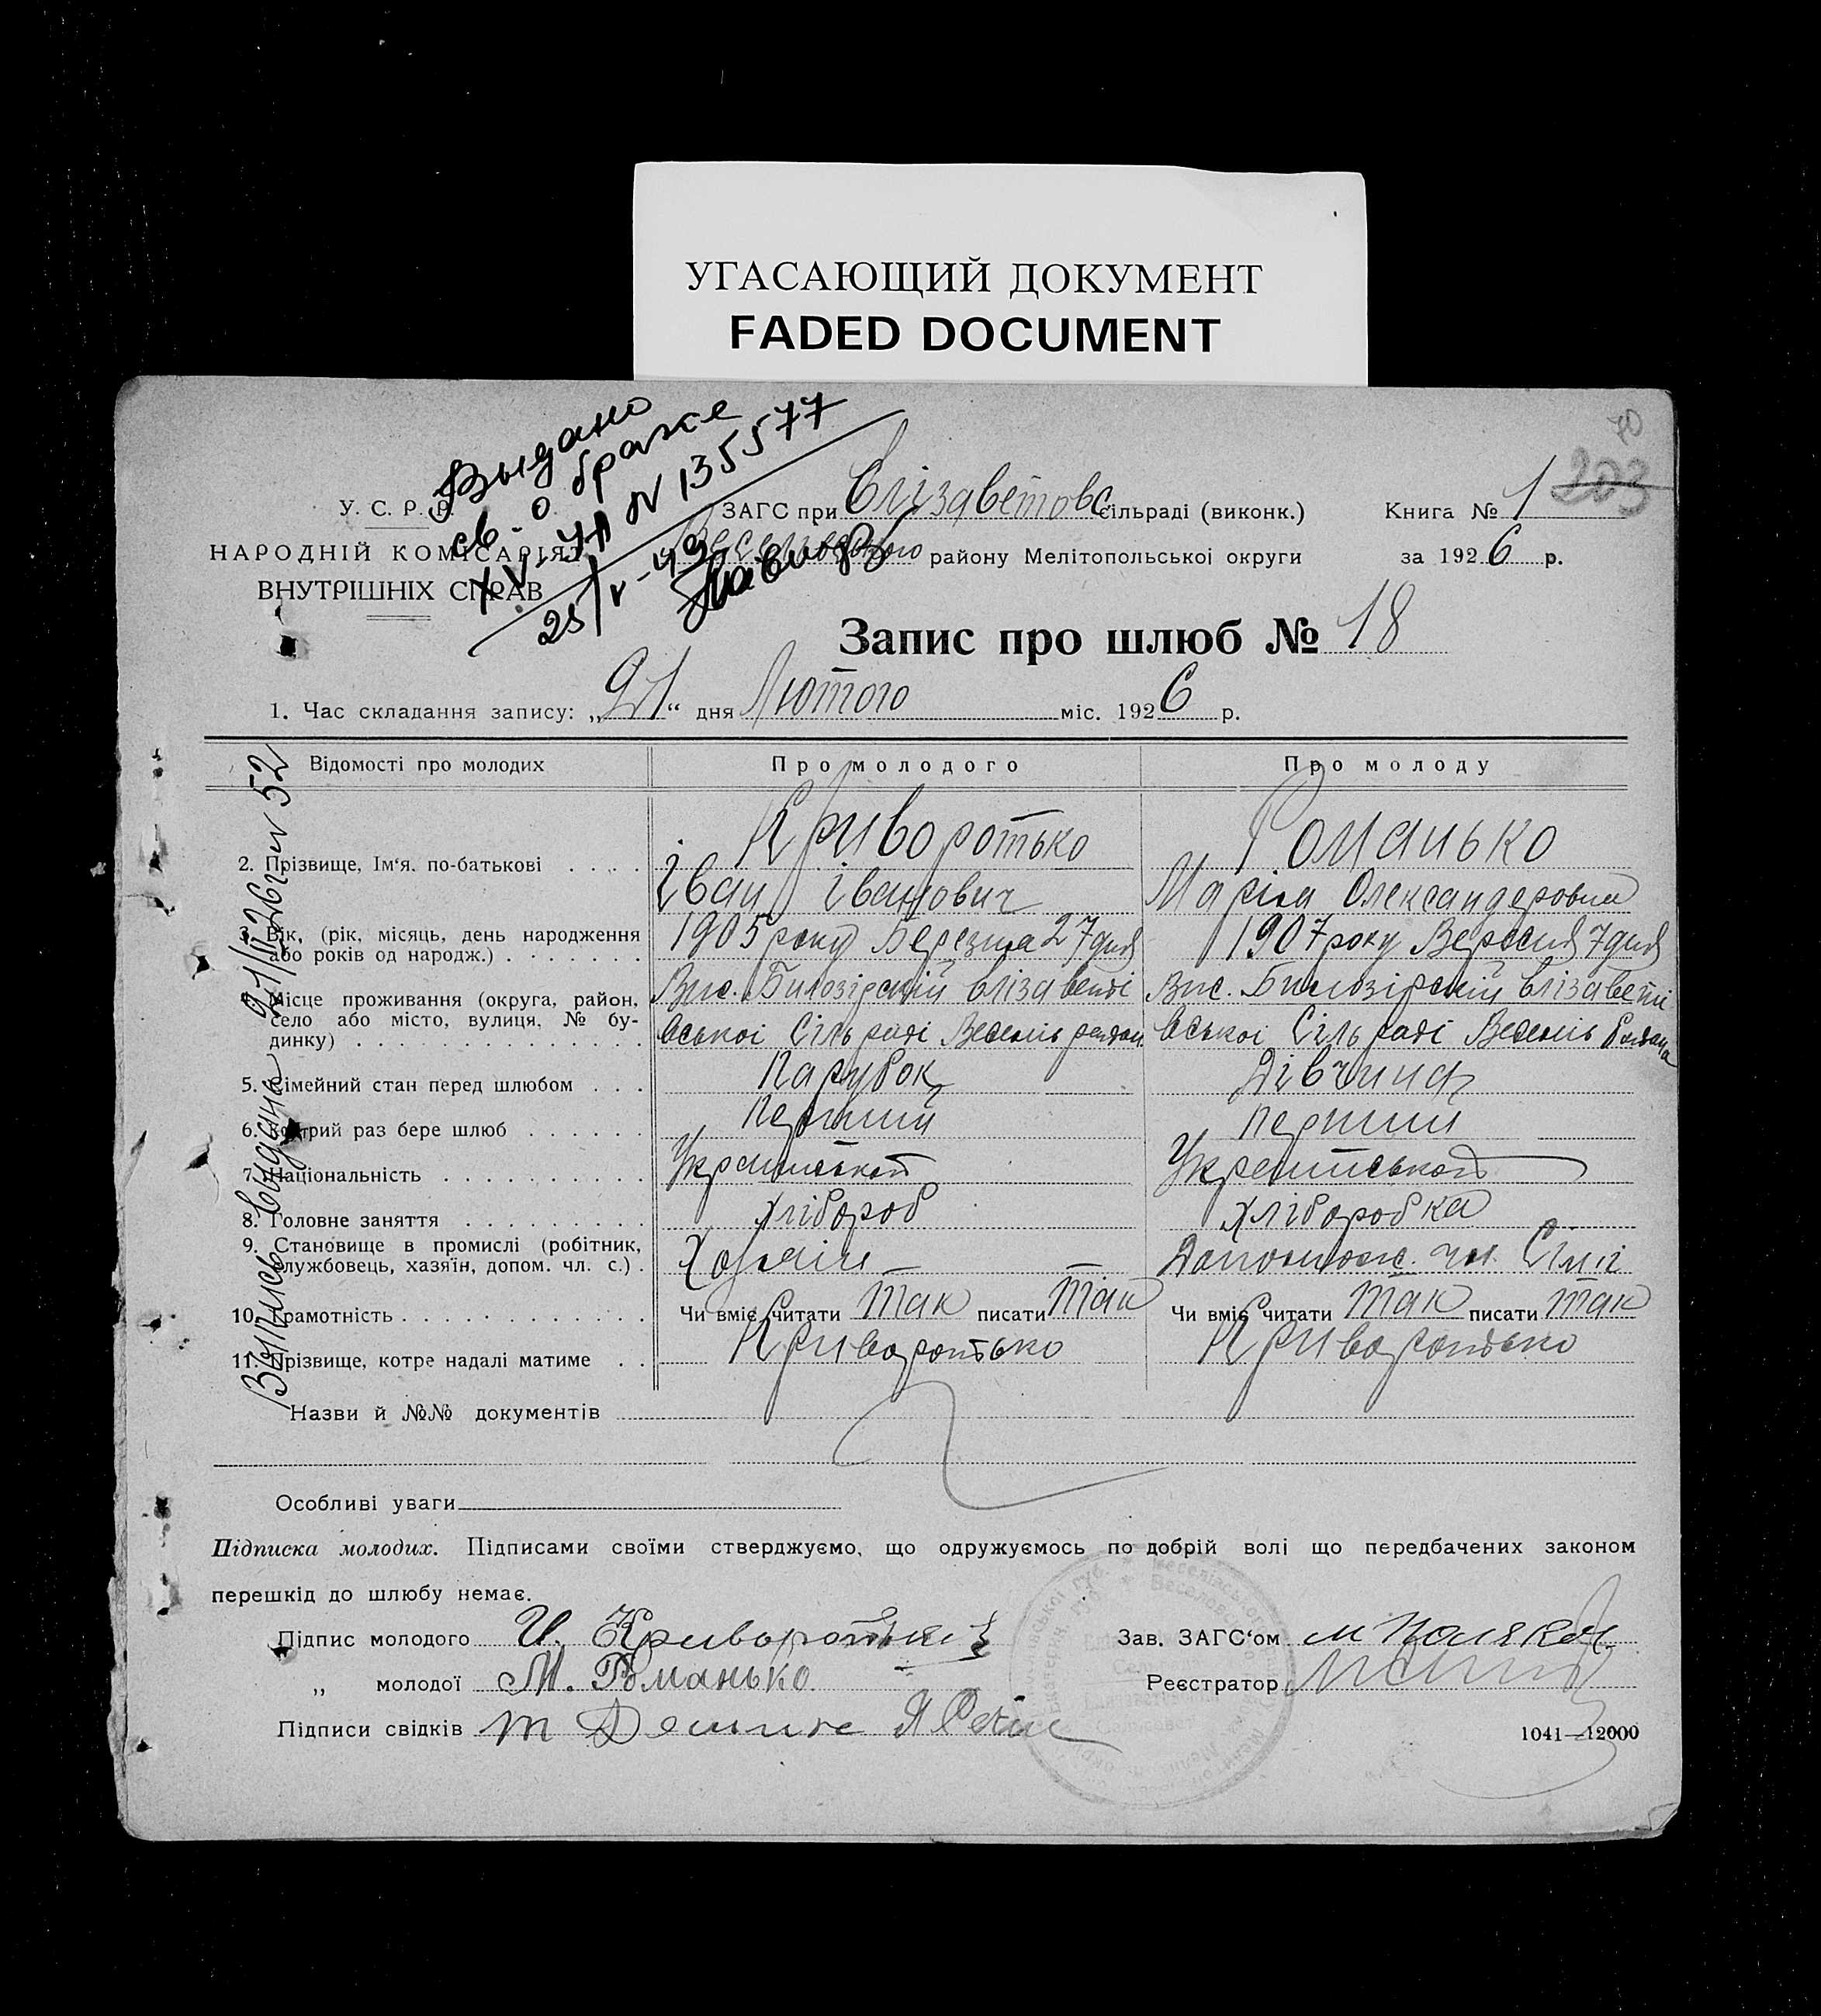 УГАСАЮЩИЙ ДОКУМЕНТ
FADED DOCUMENT
Выдано
св-о о браке
№ 135577
25/V-49
70
203
У. С. Р. Р.
НАРОДНІЙ КОМІСАРІЯТ
ВНУТРІШНІХ СПРАВ
ЗАГС при Єлізаветовс. сільраді (виконк.)
Веселівського району Мелітопольської округи
Книга № 1
за 1926 р.
Запис про шлюб № 18
1. Час складання запису: „21“ дня Лютого міс. 1926 р.
Відомості про молодих
Про молодого
Про молоду
2. Прізвище, Ім‘я. по-батькові
Криворотько
Іван Іванович
Романько
Марія Олександеровна
3. Вік, (рік, місяць, день народження або років од народж.)
1905 року Березня 27 дня
1907 року Вересня 7 дня
4. Місце проживання (округа, район, село або місто, вулиця, № будинку)
Вис. Билозірский Єлізаветі
вської Сільраді Веселів
Вис. Билозірский Єлізаветі
вської Сільраді Веселів района
5. Сімейний стан перед шлюбом
Парубок
Дівчина
6. Котрий раз бере шлюб
Перший
Перший
7. Національність
Української
Української
8. Головне заняття
Хлібороб
Хліборобка
9. Становище в промислі (робітник, службовець, хазяїн, допом. чл. с.)
Хозяїн
Допомож. чл. Сімії
10. Грамотність
Чи вміє читати так писати так
Чи вміє читати так писати так
11. Прізвище, котре надалі матиме
Криворотько
Криворотько
Назви й №№ документів
Особливі уваги
Підписка молодих. Підписами своїми стверджуємо, що одружуємось по добрій волі що передбачених законом
перешкід до шлюбу немає.
Підпис молодого И. Криворотько
„ молодої М. Романько
Підписи свідків
Зав. ЗАГС‘ом
Реєстратор
1041—12000
Випись видана 21/II 26 г. № 52